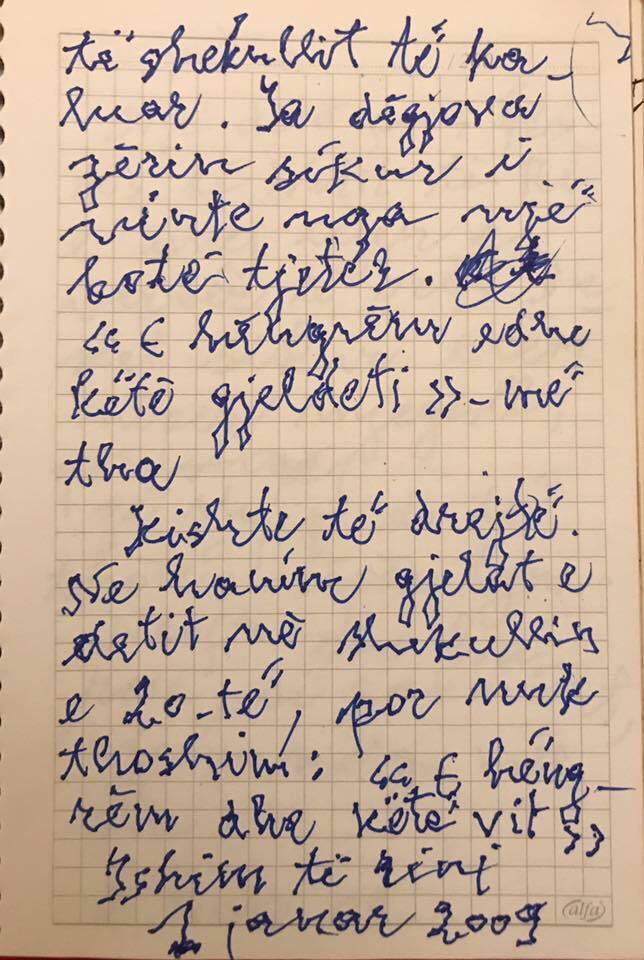 të shekullit të ka-
luar. Ja dëgjova
zërin sikur i
vinte nga një
botë tjetër.
“E hëngrëm edhe
këtë gjeldeti” – më
tha
Kishte të drejtë.
Ne hanim gjelat e
detit në shekullin
e 20-të, por nuk
thoshim: “E hëng-
rëm dhe këtë vit”
Ishim të rinj
1 janar 2009
alfa